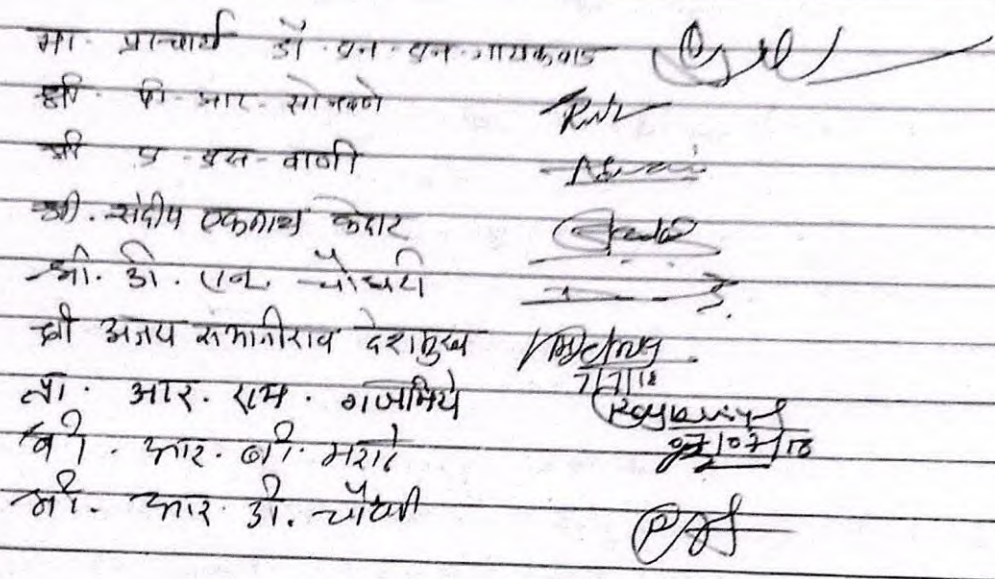 मा. प्राचार्य डॉ. एन. एन. गायकवाड
श्री. पी. आर. सोनवणे
श्री ए. एस. वाणी
श्री. संदीप एकनाथ केदार
श्री. डी. एन. चौधरी
श्री अजय संभाजीराव देशमुख
7/7/18
आर. एम. गजभिये
07/07/18
आर. बी. मराठे
श्री. आर. डी. चौधरी